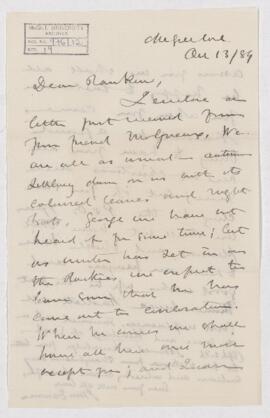 McGILL UNIVERSITY
ARCHIVES
ACC. NO. 946/12c
REF. 19
Oct 13/89
Dear Rankin,
I enclose a
letter just received from
your friend McGreevy. We
are all as usual – autumn
settling down on us with its
coloured leaves and night
frosts. George we have not
heard of for some time; but
as winter has set in in
the Rockies we expect to
learn soon that he has
come out to civilization.
When he comes we shall
have all here once more
except you; and